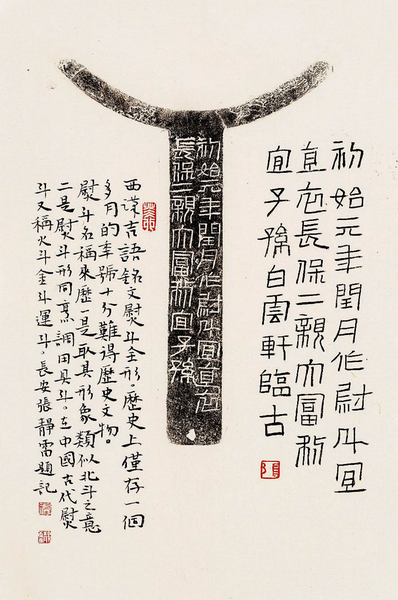 初始元年閏月作尉斗宜
直衣長保二親大富利
宜子孫白雲軒臨古
初始元年閏月作尉斗宜直衣
長保二親大富利宜子孫
西漢吉語銘文熨斗全形，歷史上僅存一個
多月的年號十分難得歷史文物。
熨斗名稱來歷一是取其形象類似北斗之意
二是熨斗形同烹調用具斗。在中國古代熨
斗又稱火斗金斗運斗。長安張靜雷題記